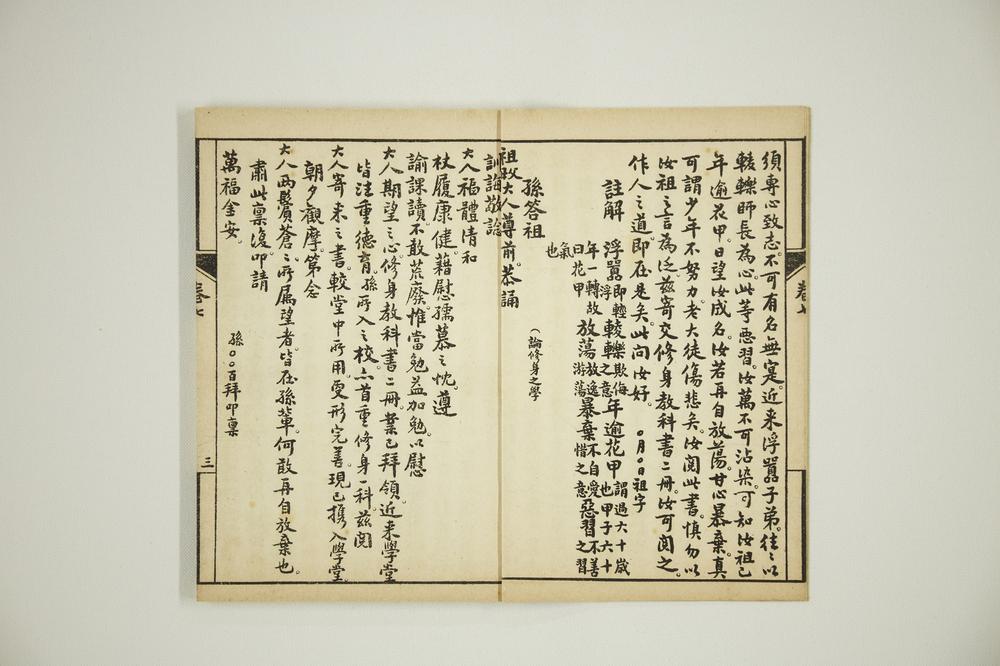 須專心致志。不可有名無寔。近来浮囂子弟。往々以
輘轢師長為心。此等惡習。汝萬不可沾染。可知汝祖已
年逾花甲。日望汝成名。汝若再自放蕩。甘心暴棄。真
可謂少年不努力。老大徒傷悲矣。汝閱此書。慎勿以
汝祖之言為泛。茲寄交修身教科書二冊。汝可閱之。
作人之道。即在是矣。此問汝好。 〇月〇日祖字
註解 浮囂即輕浮輘轢欺侮之意年逾花甲謂過六十歲也甲子六十
年一轉故曰花甲放蕩放逸游蕩暴棄不自愛惜之意惡習不善之習
氣也
孫答祖 (論修身之學
祖父大人尊前。恭誦
訓誨。敬諗
大人福體清和
杖履康健。藉慰孺慕之忱。遵
諭課讀。不敢荒廢。惟當勉益加勉。以慰
大人期望之心。修身教科書二冊。業已拜領。近来學堂
皆注重德育。孫所入之校。亦首重修身一科。茲閱
大人寄来之書。較堂中所用。更形完善。現已携入學堂。
朝夕觀摩。第念
大人兩鬢蒼々。所屬望者。皆在孫輩。何敢再自放棄也。
肅此稟復。叩請
萬福金安。
孫〇〇百拜叩稟
卷七
三
卷七